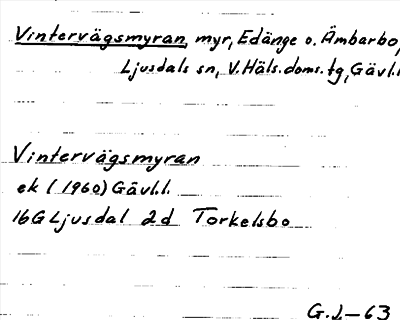 Vintervägsmyran, myr, Edänge o. Ämbarbo,
Ljusdals sn, V.Häls.doms.tg, Gävl.l
Vintervägsmyran
ek (1960) Gävl.l.
16G Ljusdal 2d Torkelsbo
G.J–63